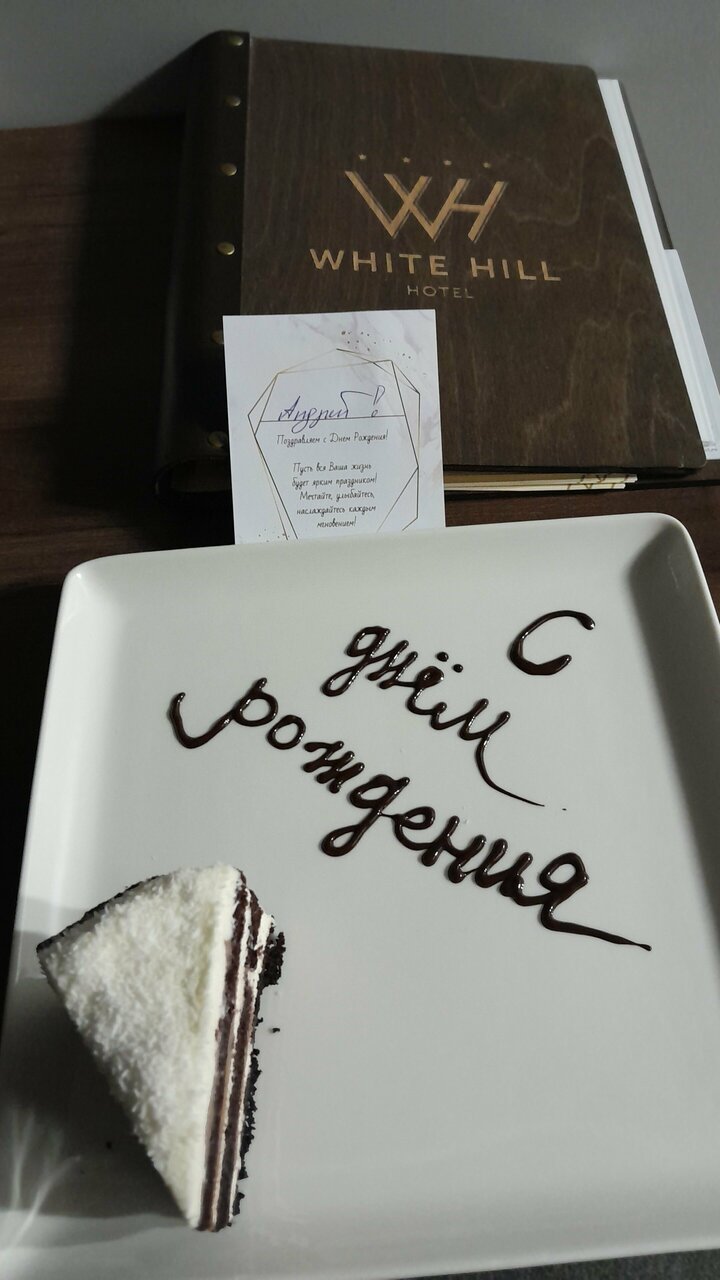 WH
WHITE HILL
HOTEL
Андрей!
Поздравляем с Днем Рождения!
Пусть вся Ваша жизнь
будет ярким праздником!
Мечтайте, улыбайтесь,
наслаждайтесь каждым
мгновением!
С
днём
рождения